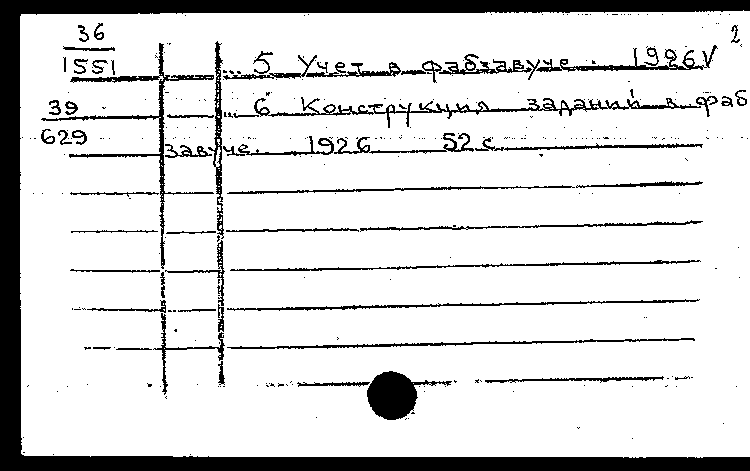 2
36
1551 ... 5 Учет в фабзавуче. 1926 V
39 ... 6 Конструкция заданий в фаб
629 завуче. 1926 52 с